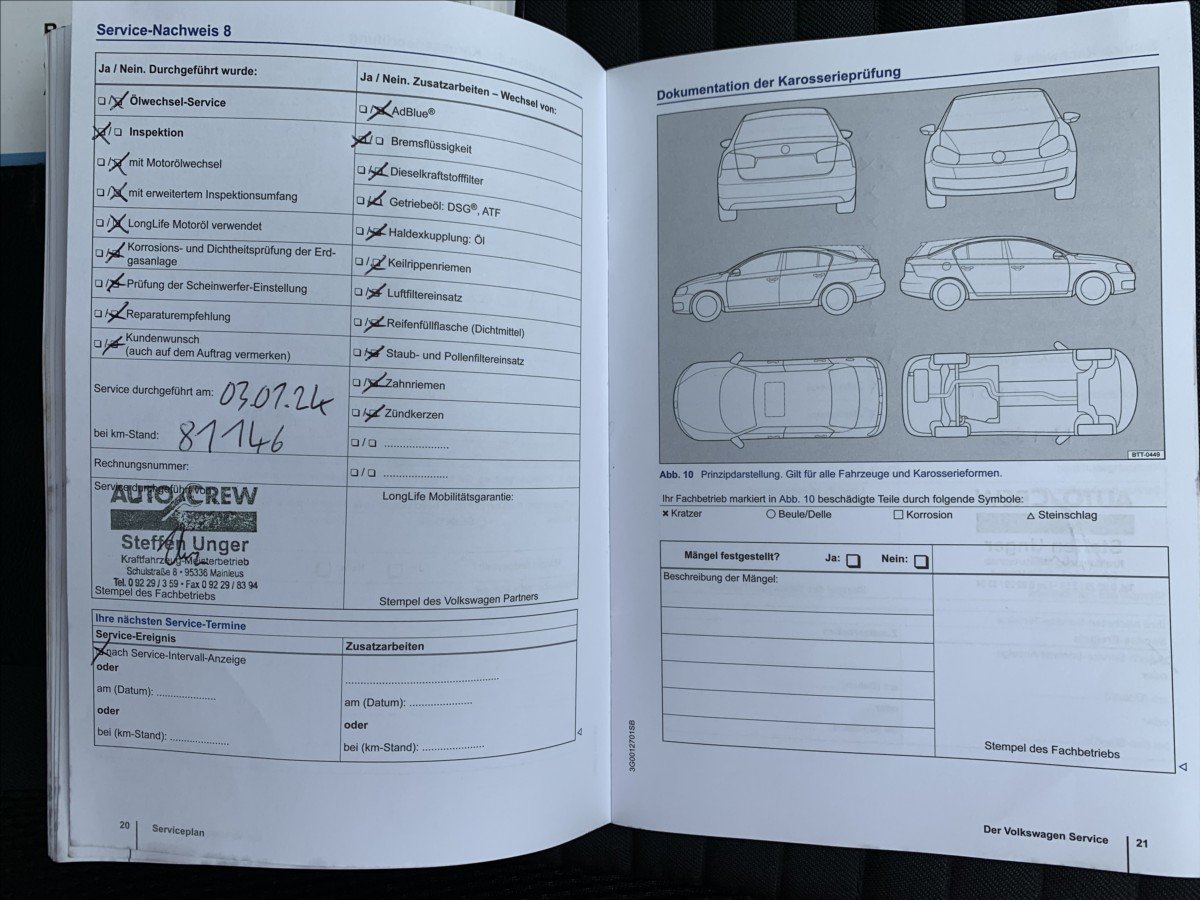 Service-Nachweis 8
Ja / Nein. Durchgeführt wurde:
❏ / ❏ Ölwechsel-Service
❏ / ❏ Inspektion
❏ / ❏ mit Motorölwechsel
❏ / ❏ mit erweitertem Inspektionsumfang
❏ / ❏ LongLife Motoröl verwendet
❏ / ❏ Korrosions- und Dichtheitsprüfung der Erd-
gasanlage
❏ / ❏ Prüfung der Scheinwerfer-Einstellung
❏ / ❏ Reparaturempfehlung
❏ / ❏ Kundenwunsch
(auch auf dem Auftrag vermerken)
Service durchgeführt am: 03.01.24
bei km-Stand: 81146
Rechnungsnummer:
Service durchgeführt von:
AUTO CREW
Steffen Unger
Kraftfahrzeug-Meisterbetrieb
Schulstraße 8 • 95336 Mainleus
Tel. 0 92 29 / 3 59 • Fax 0 92 29 / 83 94
Stempel des Fachbetriebs
Ja / Nein. Zusatzarbeiten – Wechsel von:
❏ / ❏ AdBlue®
❏ / ❏ Bremsflüssigkeit
❏ / ❏ Dieselkraftstofffilter
❏ / ❏ Getriebeöl: DSG®, ATF
❏ / ❏ Haldexkupplung: Öl
❏ / ❏ Keilrippenriemen
❏ / ❏ Luftfiltereinsatz
❏ / ❏ Reifenfüllflasche (Dichtmittel)
❏ / ❏ Staub- und Pollenfiltereinsatz
❏ / ❏ Zahnriemen
❏ / ❏ Zündkerzen
❏ / ❏ ....................
❏ / ❏ ....................
LongLife Mobilitätsgarantie:
Stempel des Volkswagen Partners
Ihre nächsten Service-Termine
Service-Ereignis
nach Service-Intervall-Anzeige
oder
am (Datum): ..................
oder
bei (km-Stand): ..................
Zusatzarbeiten
..............................................
am (Datum): ...................
oder
bei (km-Stand): ...................
20 Serviceplan
Dokumentation der Karosserieprüfung
BTT-0449
Abb. 10 Prinzipdarstellung. Gilt für alle Fahrzeuge und Karosserieformen.
Ihr Fachbetrieb markiert in Abb. 10 beschädigte Teile durch folgende Symbole:
× Kratzer ○ Beule/Delle □ Korrosion △ Steinschlag
Mängel festgestellt? Ja: ❏ Nein: ❏
Beschreibung der Mängel:
Stempel des Fachbetriebs
3G0012701SB
Der Volkswagen Service 21